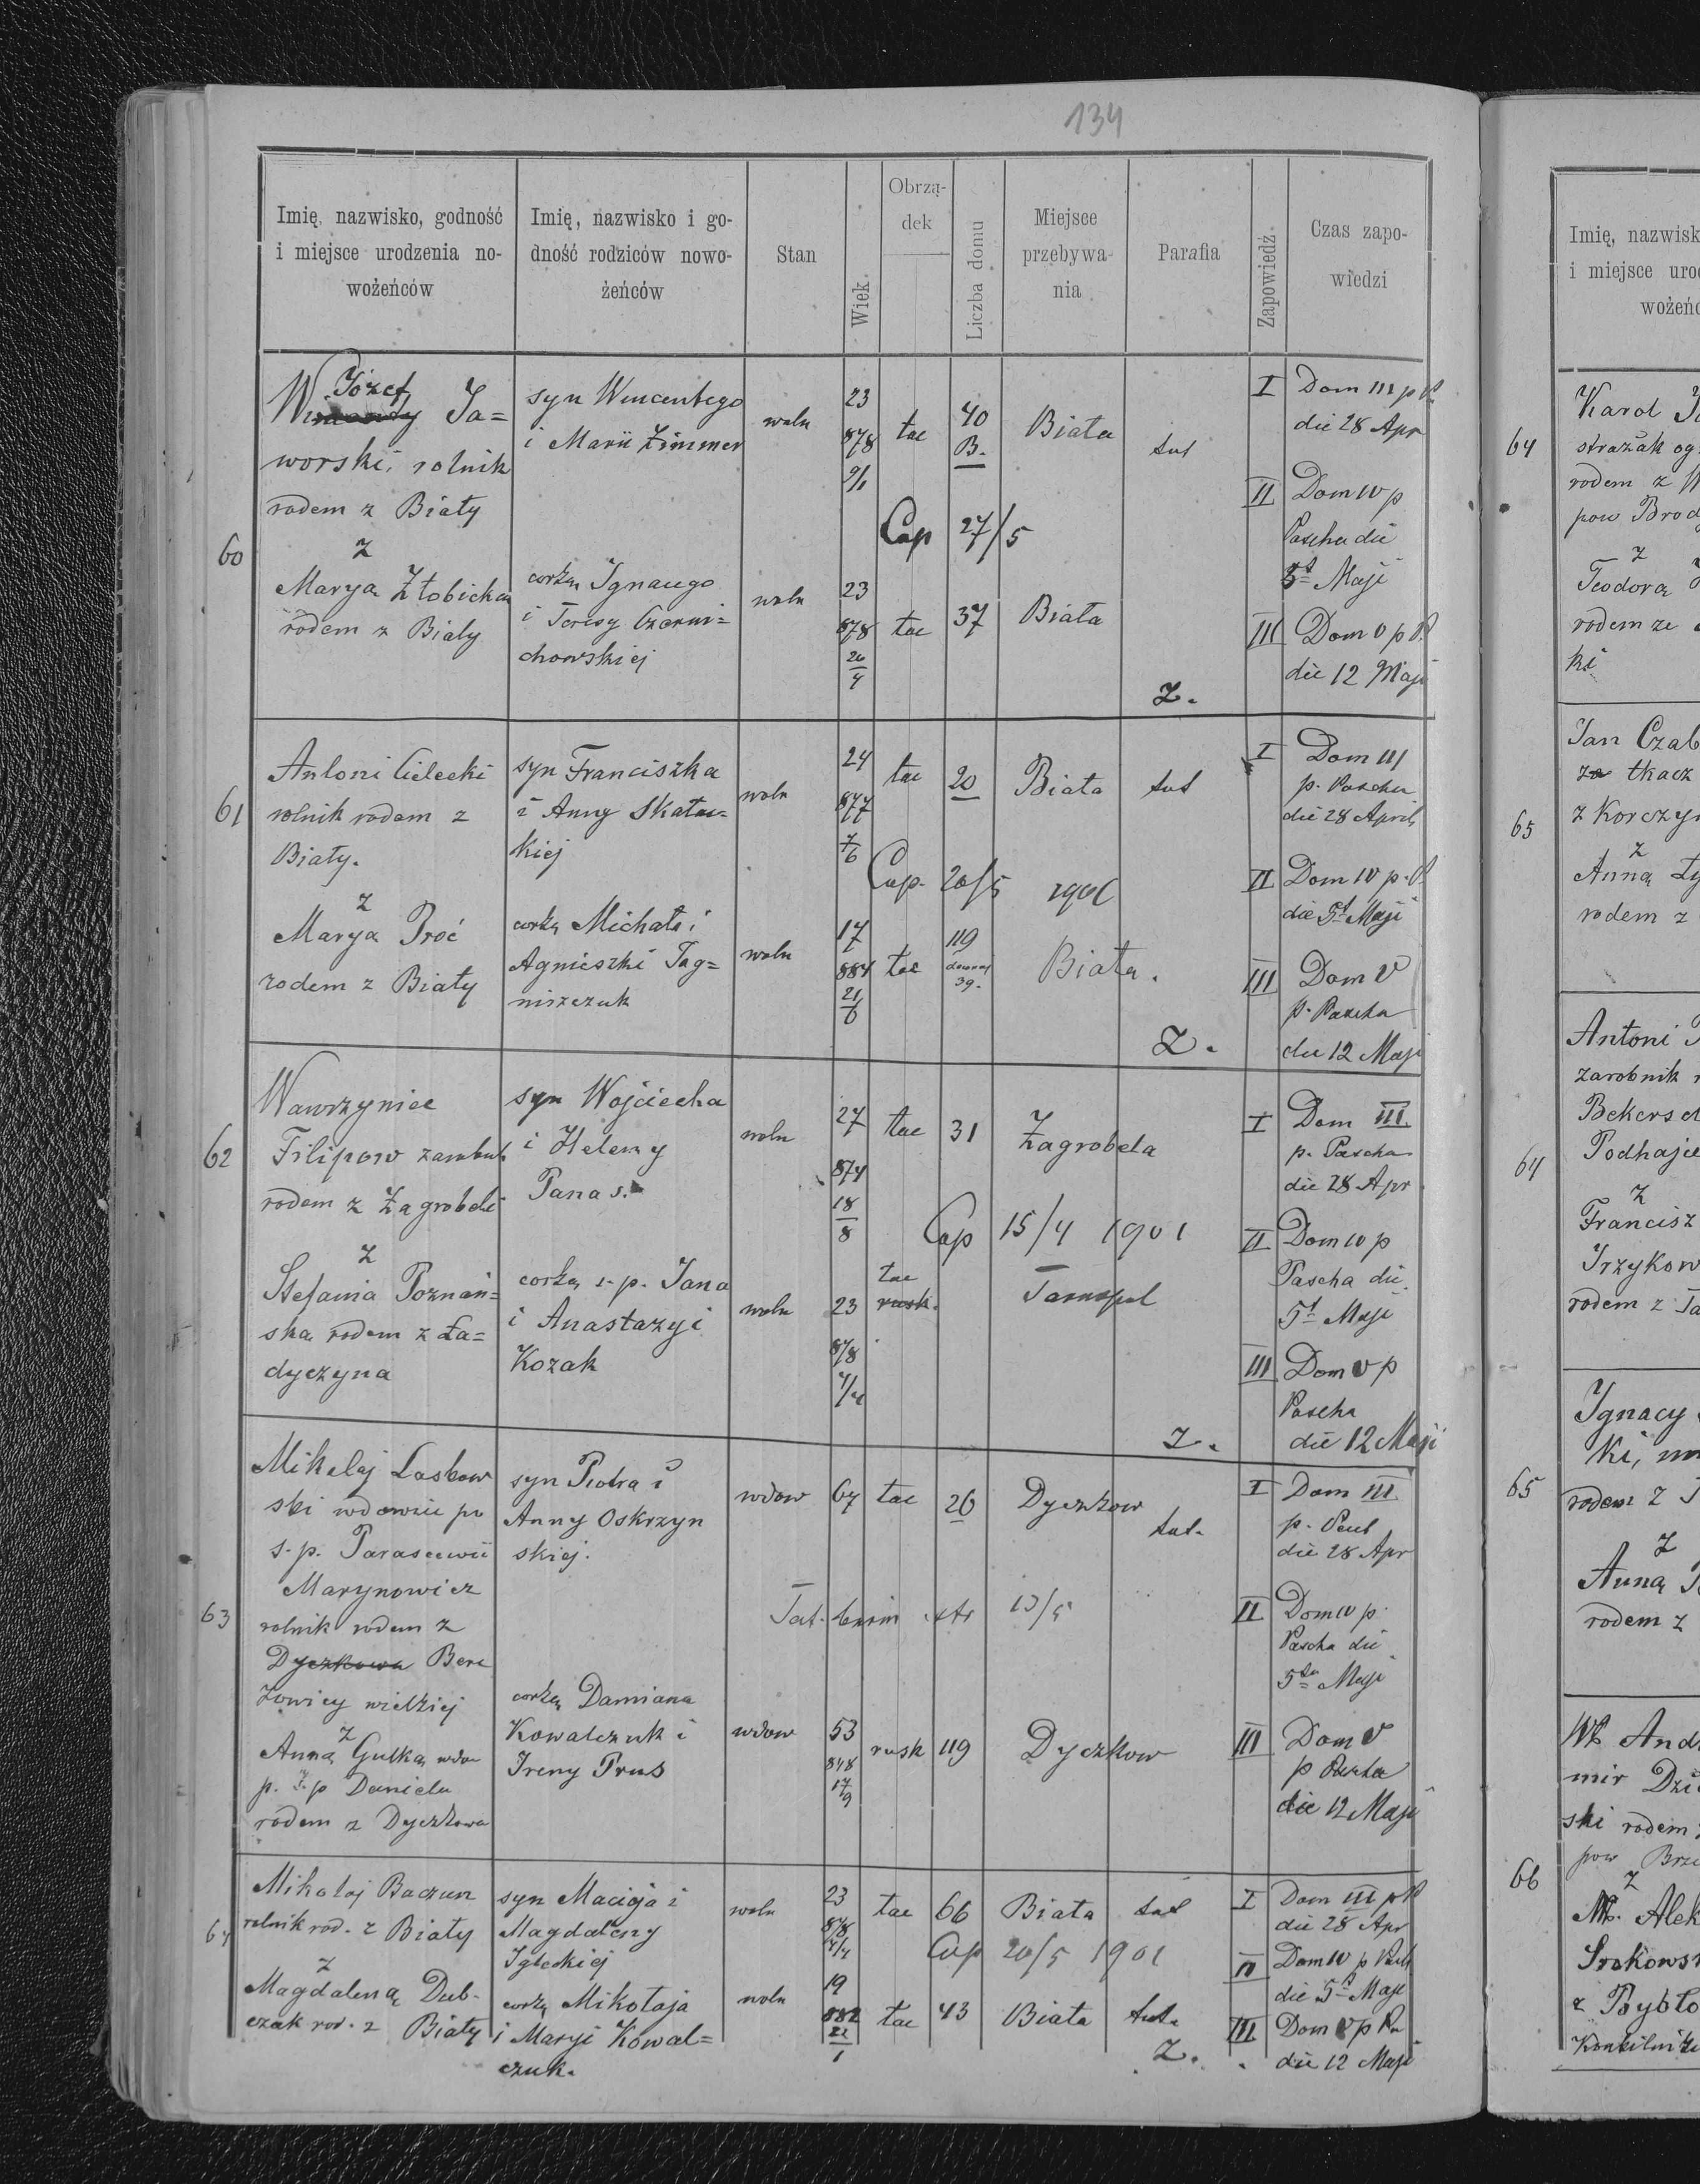 134
Imię, nazwisko, godność
i miejsce urodzenia no-
wożeńców
Imię, nazwisko i go-
dność rodziców nowo-
żeńców
Stan
Wiek.
Obrzą-
dek
Liczba domu
Miejsce
przebywa-
nia
Parafia
Zapowiedź.
Czas zapo-
wiedzi
60
Józef
Ja=
worski, rolnik
rodem z Biały
z
Marya Złobicka
rodem z Biały
syn Wincentego
i Marii Zimmer
corka Ignacego
i Teresy Czerni=
chowskiej
woln
woln
23
878
9/1
23
878
26
4
łac
łac
40
B.
Cap 27/5
37
Biała
Biała
tut
Z.
I Dom III p P.
die 28 Apr
II Dom IV p
Pascha die
5t Maji
III Dom V p P.
die 12 Maji
61
Antoni Cielecki
rolnik rodem z
Biały.
z
Marya Proć
rodem z Biały
syn Franciszka
i Anny Skałec-
kiej
corka Michała i
Agnieszki Jag=
niszczuk
woln
woln
24
877
7
6
17
884
21
6
łac
łac
20
Cap. 20/5 1901
119
39.
Biała
Biała.
tut
Z.
I Dom III
p. Pascha
die 28 Aprili
II Dom IV p. P.
die 5t Maji
III Dom V
p. Pascha
die 12 Maji
62
Wawrzyniec
Filipow zarobnik
rodem z Zagrobeli
z
Stefania Poznań=
ska rodem z Ła=
dyczyna
syn Wojciecha
i Heleny
Panas.
corka s. p. Jana
i Anastazyi
Kozak
woln
woln
27
874
18
8
23
878
łac
łac
rusk.
31
Zagrobela
Cap 15/4 1901
Tarnopol
Z.
I Dom III
p. Pascha
die 28 Apr.
II Dom IV p
Pascha die
5t Maji
III Dom V p
Pascha
die 12 Maji
63
Mikołaj Laskow
ski wdowiec po
s. p. Parascewii
Marynowicz
rolnik rodem z
Dyczkowa Bere
zowicy wielkiej
z
Anna Gulka wdow
p. s. p Danielu
rodem z Dyczkowa
syn Piotra i
Anny Oskrzyn
skiej.
corka Damiana
Kowalczuk i
Ireny Prus
wdow
wdow
67
53
848
17
9
łac
rusk
26
119
Dyczkow
Dyczkow
tut.
I Dom III
die 28 Apr
II Dom IV p.
Pascha die
Maji
III Dom V
p Pascha
die 12 Maji
64
Mikołaj Baczun
rolnik rod. z Biały
z
Magdalena Dub-
czak rod. z Biały
syn Macieja i
Magdaleny
Igleckiej
corka Mikołaja
i Maryi Kowal=
czuk.
woln
woln
23
878
19
882
21
1
łac
łac
66
43
Biała
Cap 20/5 1901
Biała
tut
tut.
Z.
I Dom III p P
die 28 Apr
II Dom IV p Pasch
die 5t Maji
III Dom V p Pa
die 12 Maji
Imię, nazwisk
i miejsce uro
wożeńc
64
Karol
strażak og
rodem z W
pow Brod
z
Teodora
rodem ze
ki
65
Jan Czab
tkacz
z Korczyn
z
Anna
rodem z
64
Antoni
zarobnik
Podhajec
z
Francisz
Irzykow
rodem z Ta
65
Ignacy
rodem z
z
Anna
rodem z
66
mir Dzi
ski rodem
pow Brze
z
Alek
Srokows
z